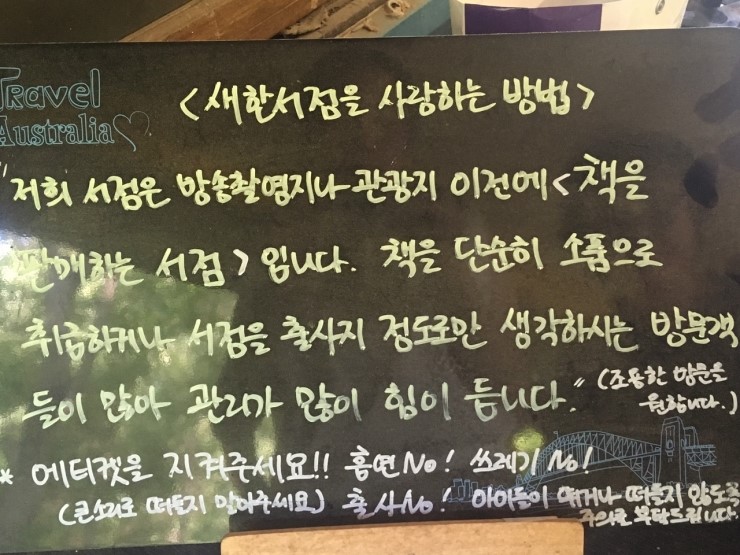 Travel
Australia
<새한서점을 사랑하는 방법>
"저희 서점은 방송촬영지나 관광지 이전에 <책을
판매하는 서점> 입니다. 책을 단순히 소품으로
취급하거나 서점을 출사지 정도로만 생각하시는 방문객
들이 많아 관리가 많이 힘이 듭니다." (조용한 방문을
원합니다.)
* 에티켓을 지켜주세요!! 흡연No! 쓰레기 No!
(큰소리로 떠들지 말아주세요) 출사No! 아이들이 떠들지 않도록
주의를 부탁드립니다.